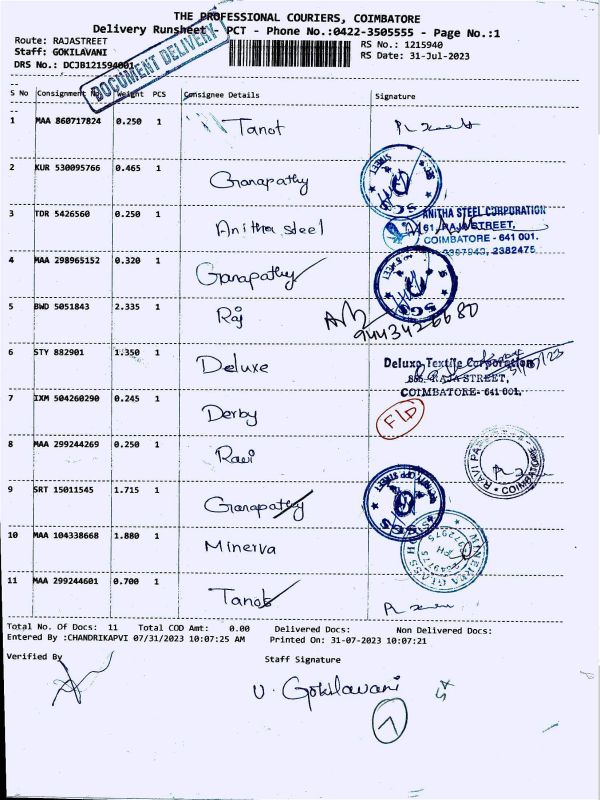 THE PROFESSIONAL COURIERS, COIMBATORE
Delivery Runsheet - PCT - Phone No.:0422-3505555 - Page No.:1
Route: RAJASTREET
RS No.: 1215940
Staff: GOKILAVANI
RS Date: 31-Jul-2023
DRS No.: DCJB121594001
DOCUMENT DELIVERY
S No Consignment No Weight PCS Consignee Details Signature
1 MAA 860717824 0.250 1 Tanot
2 KUR 530095766 0.465 1 Ganapathy
SGS
3 TDR 5426560 0.250 1 Anitha steel
ANITHA STEEL CORPORATION
61, RAJA STREET,
COIMBATORE - 641 001.
2382475
4 MAA 298965152 0.320 1 Ganapathy
SGS
5 BWD 5051843 2.335 1 Raj
9443426680
6 STY 882901 1.350 1 Deluxe
Deluxe Textile Corporation
RAJA STREET,
COIMBATORE - 641 001.
7 IXM 504260290 0.245 1 Derby
FLP
8 MAA 299244269 0.250 1 Ravi
RAVI PA
COIMBATORE
9 SRT 15011545 1.715 1 Ganapathy
SGS
10 MAA 104338668 1.880 1 Minerva
MINERVA GLASS
11 MAA 299244601 0.700 1 Tanot
Total No. Of Docs: 11 Total COD Amt: 0.00 Delivered Docs: Non Delivered Docs:
Entered By :CHANDRIKAPVI 07/31/2023 10:07:25 AM Printed On: 31-07-2023 10:07:21
Verified By
Staff Signature
V. Gokilavani
7